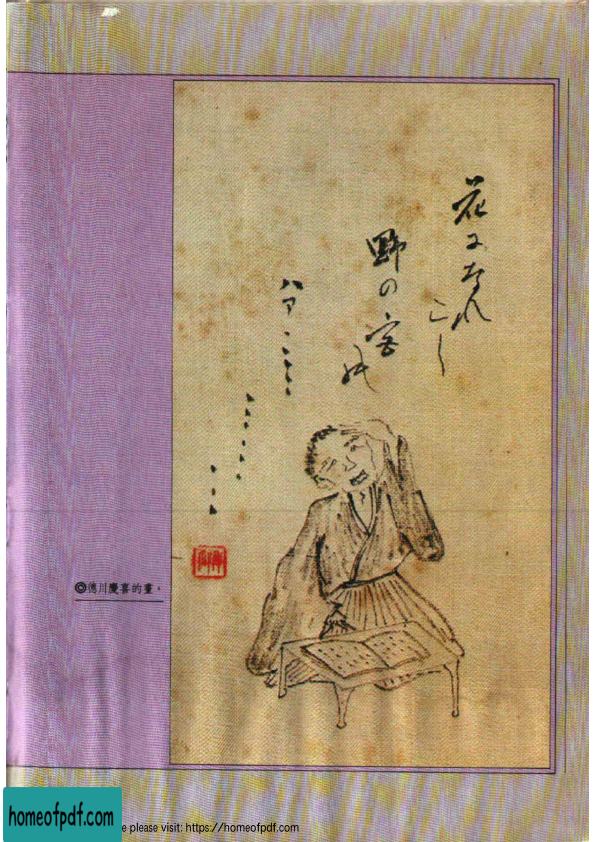 花になれ
こし
野の客
ハア
◎德川慶喜的畫。
homeofpdf.com
e please visit: https://homeofpdf.com